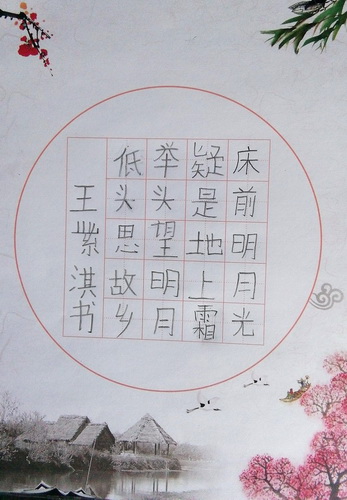 床前明月光
疑是地上霜
举头望明月
低头思故乡
王紫淇书